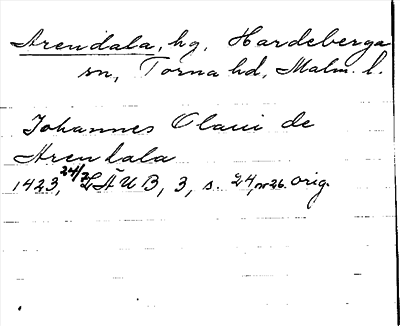 Arendala, hg, Hardeberga
sn, Torna hd, Malm. l.
Johannes Olaui de
Arendala
1423, 24/2 LÄUB, 3, s. 24, nr 26. orig.